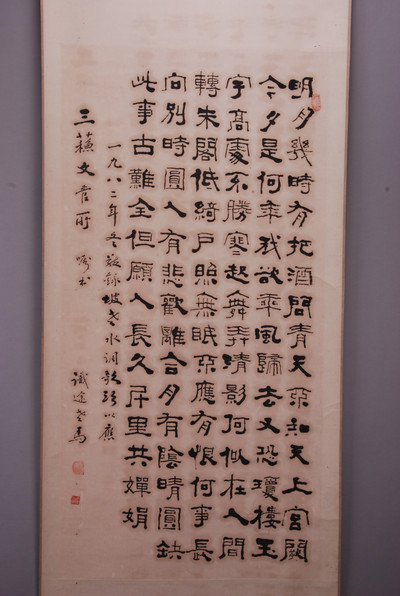 明月幾時有把酒問青天不知天上宮闕
今夕是何年我欲乘風歸去又恐瓊樓玉
宇高處不勝寒起舞弄清影何似在人間
轉朱閣低綺戶照無眠不應有恨何事長
向別時圓人有悲歡離合月有陰晴圓缺
此事古難全但願人長久千里共嬋娟
一九八二年冬敬錄坡老水調歌頭以應
三蘇文管所 囑書 識途老馬